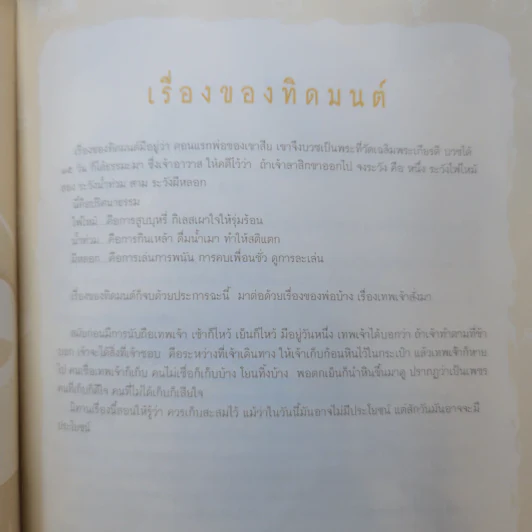 เรื่องของทิดมนต์
เรื่องของทิดมนต์มีอยู่ว่า ตอนแรกพ่อของเขาสึม เขาจึงบวชเป็นพระที่วัดเฉลิมพระเกียรติ บวชได้
๑๕ วัน ก็ได้ธรรมะมา ซึ่งเจ้าอาวาส ให้คติไว้ว่า ถ้าเจ้าลาสิกขาออกไป จงระวัง คือ หนึ่ง ระวังไฟไหม้
สอง ระวังน้ำท่วม สาม ระวังมีหลอก
นี่คือปริศนาธรรม
ไฟไหม้...คือการสูบบุหรี่ กิเลสเผาใจให้รุ่มร้อน
น้ำท่วม...คือการกินเหล้า ดื่มน้ำเมา ทำให้สติแตก
มีหลอก...คือการเล่นการพนัน การคบเพื่อนชั่ว ดูการละเล่น
เรื่องของทิดมนต์ก็จบด้วยประการฉะนี้ มาต่อด้วยเรื่องของพ่อบ้าง เรื่องเทพเจ้าสั่งมา
สมัยก่อนมีการนับถือเทพเจ้า เช้าก็ไหว้ เย็นก็ไหว้ มีอยู่วันหนึ่ง เทพเจ้าได้บอกว่า ถ้าเจ้าทำตามที่ข้า
บอก เจ้าจะได้สิ่งที่เจ้าชอบ คือระหว่างที่เจ้าเดินทาง ให้เจ้าเก็บก้อนหินไว้ในกระเป๋า แล้วเทพเจ้าก็หาย
ไป คนเชื่อเทพเจ้าก็เก็บ คนไม่เชื่อก็เก็บบ้าง โยนทิ้งบ้าง พอตกเย็นก็นำหินขึ้นมาดู ปรากฏว่าเป็นเพชร
คนที่เก็บก็ดีใจ คนที่ไม่ได้เก็บก็เสียใจ
นิทานเรื่องนี้สอนให้รู้ว่า ควรเก็บสะสมไว้ แม้ว่าในวันนี้มันอาจไม่มีประโยชน์ แต่สักวันมันอาจจะมี
ประโยชน์